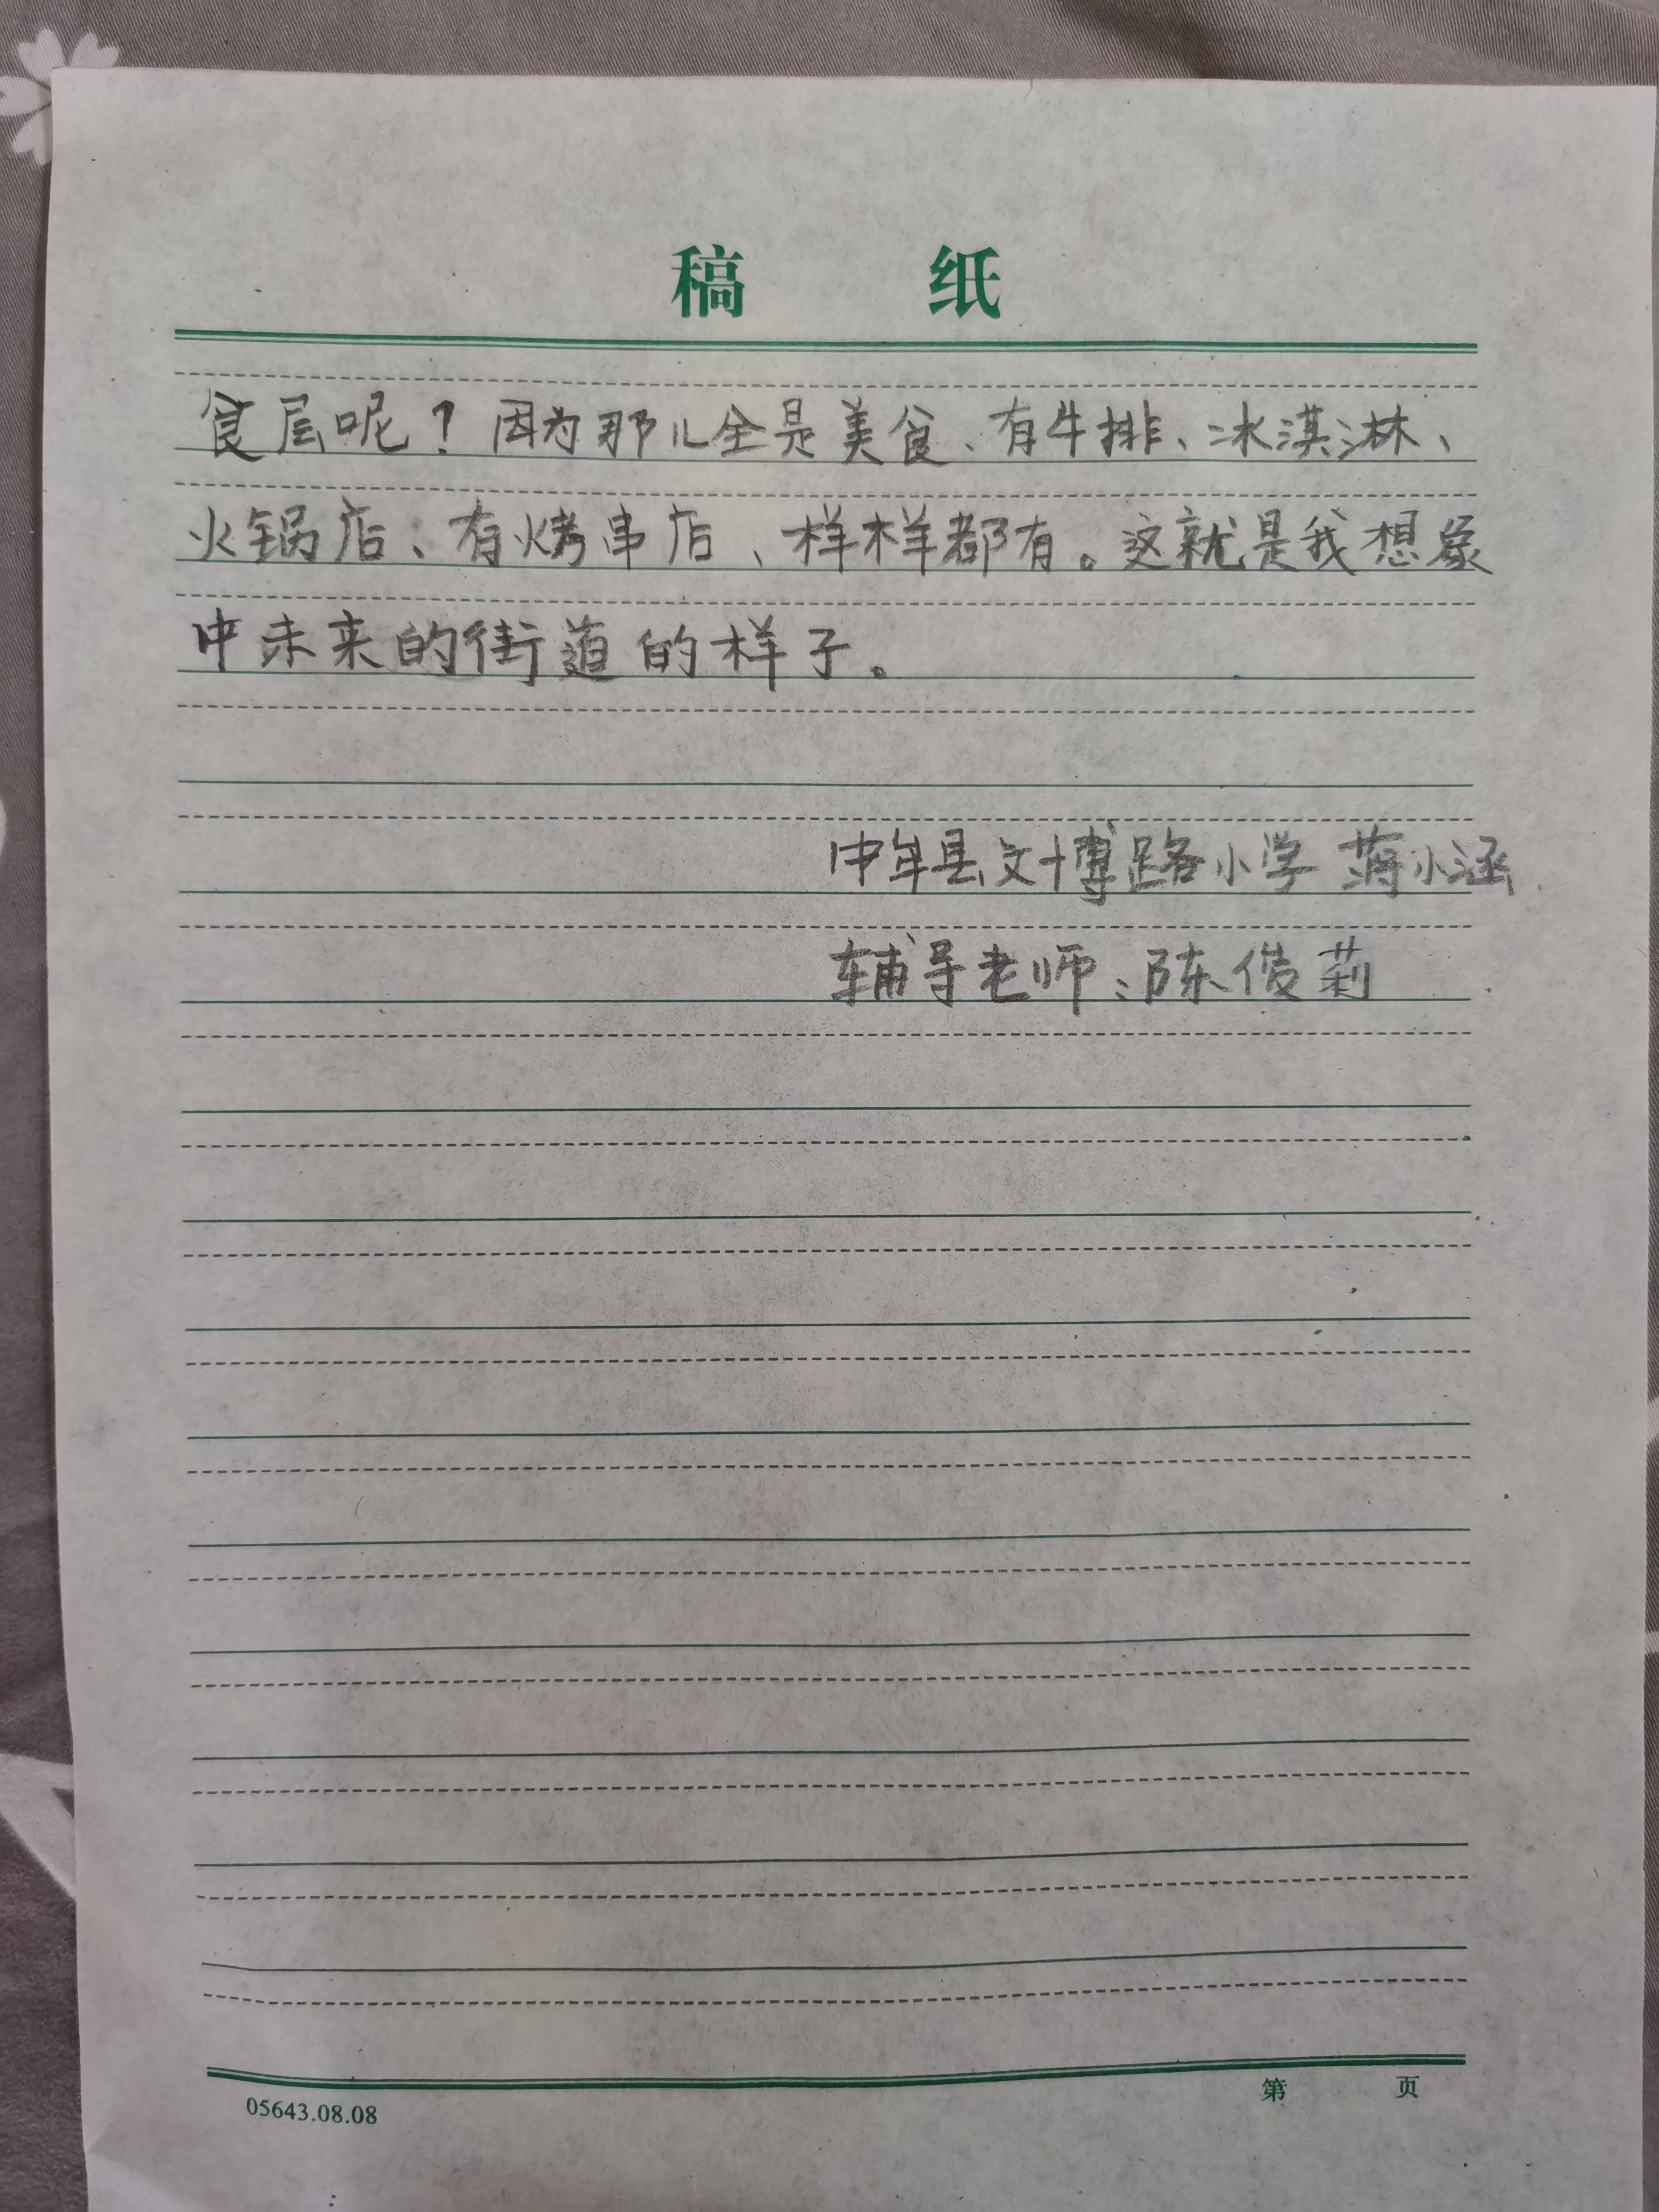 稿 纸
食层呢？因为那儿全是美食、有牛排、冰淇淋、
火锅店、有烤串店、样样都有。这就是我想象
中未来的街道的样子。
中牟县文博路小学 蒋小涵
辅导老师：陈俊莉
05643.08.08 第 页